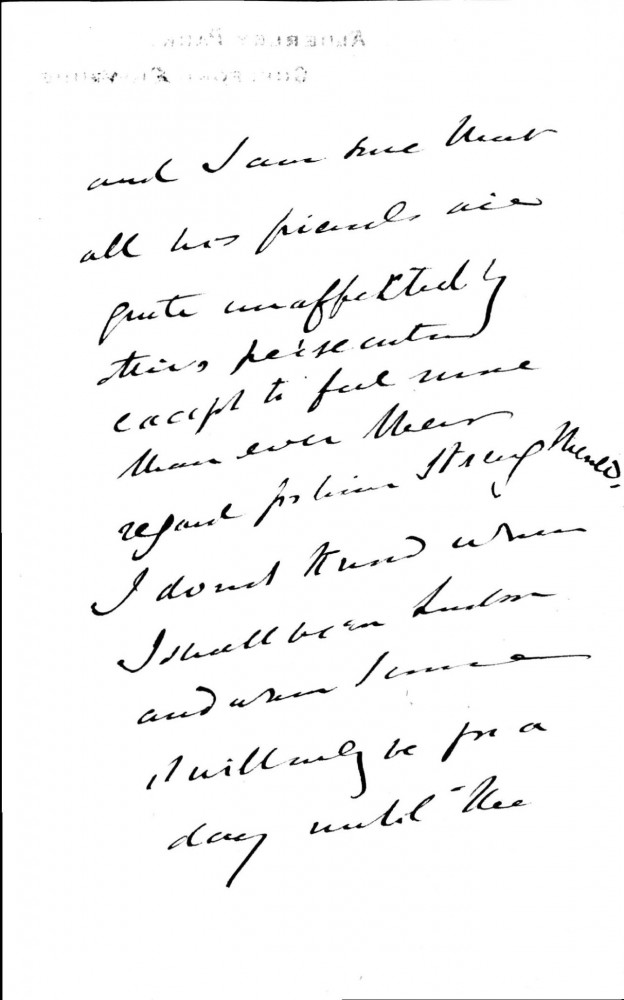 and I am sure that
all his friends are
quite unaffected by
this persecution
except to feel more
than ever their
regard for him strengthened.
I do not know when
I shall be in London
and when I come
it will only be for a
day until the